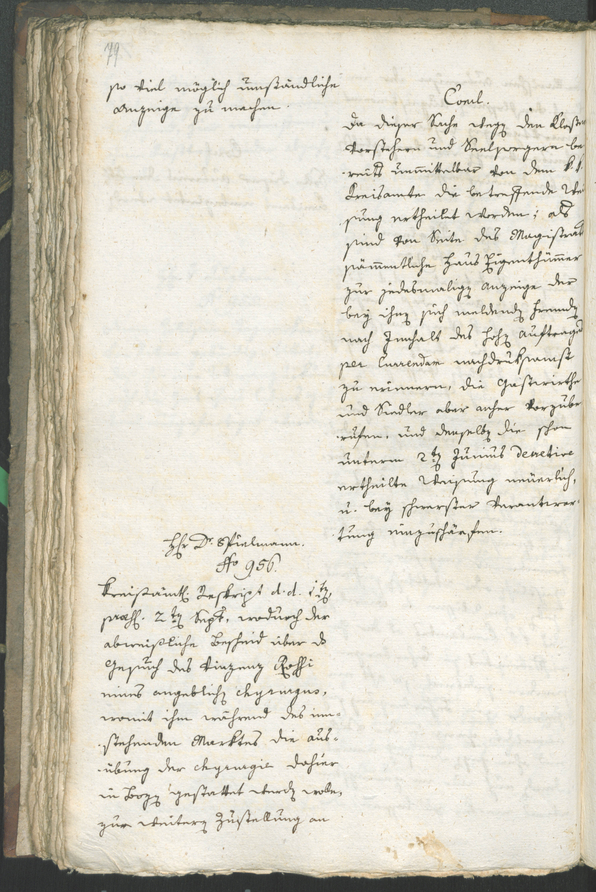 79
so viel möglich umständliche
Anzeige zu machen.
Concl.
Da dieser Sache wegen den Kloster
Vorstehern und Seelsorgern be-
reits unmittelbar von dem k.k.
Kreisamte die betreffende Wei-
sung ertheilet worden; als
sind von Seite des Magistrats
sämmentliche Haus Eigenthümmer
zur jedesmaligen Anzeige der
bey ihnen sich meldenden Fremden
nach Innhalt des hohen Auftrages
per Currendam nachdruksamst
zu erinnern, die Gastwirthe
und Siedler aber anher vorzube-
rufen, und denselben die schon
unterm 2ten Junius decretive
ertheilte Weisung neuerlich,
u. bey schwerster Verantwor-
tung einzuschärfen.
Hr. Dr. Spielmann.
No 956.
Kreisämtl. Reskript d.d. 1ten,
praes. 2ten Sept., wodurch der
abweisliche Bescheid über das
Gesuch des Vinzenz Rossi
eines angeblichen Chyrurgus,
womit ihm während des in-
stehenden Marktes die Aus-
übung der Chyrurgie dahier
in Bozen gestattet werden wolle,
zur weitern Zustellung an